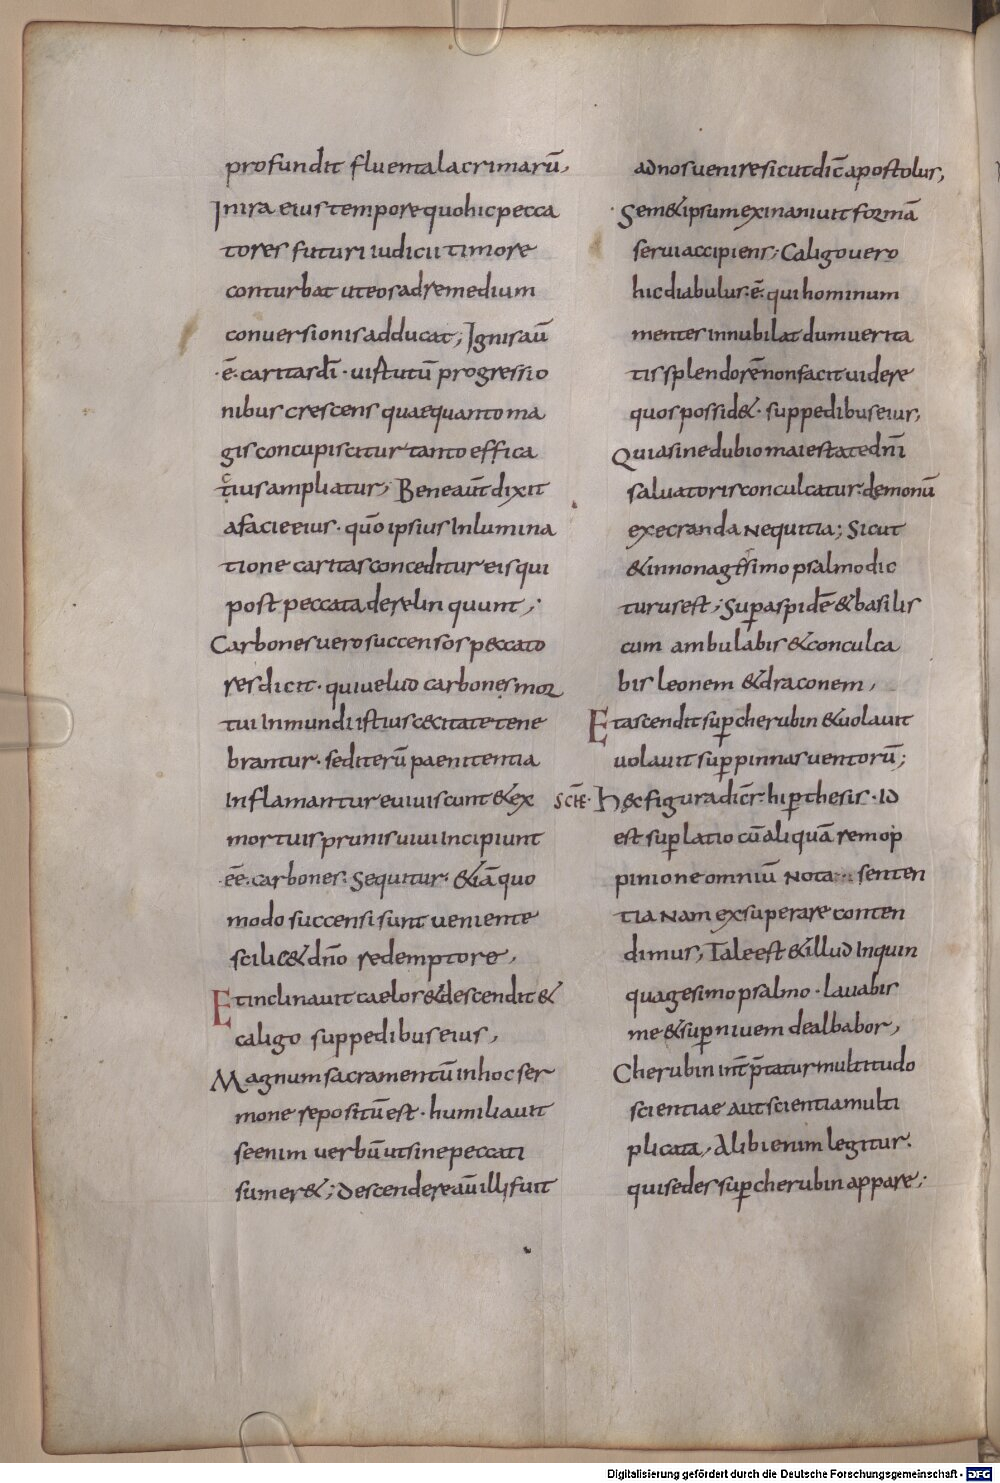 profundit fluenta lacrimarū,
In ira eius tempore quo hic pecca
tores futuri iudicii timore
conturbat ut eos ad remedium
conversionis adducat; Ignis aū
·ē· caritas dī · uirtutū progressio
nibus crescens quae quanto ma
gis concupiscitur tanto effica
tius ampliatur; Bene aūt dixit
a facie eius · quō ipsius Inlumina
tione caritas conceditur eis qui
post peccata derelinquunt;
Carbones uero succensos peccato
res dicit · qui uelud carbones mor
tui In mundi istius cęcitate tene
brantur · sed iterū paenitentia
Inflamantur euiuiscunt & ex
mortuis prunis uiui Incipiunt
·eē· carbones: Sequitur · & iā quo
modo succensi sunt ueniente
scilic& dn̄o redemptore,
Et inclinauit caelos & descendit &
caligo sup pedibus eius,
Magnum sacramentū in hoc ser
mone repositū est · humiliauit
se enim uerbū ut sine peccati
sumer&; Descendere aū illi fuit
ad nos uenire sicut dic̄ apostolus,
Sem&ipsum exinaniuit formā
serui accipiens; Caligo uero
hic diabulus ·ē· qui hominum
mentes innubilat dum uerita
tis splendorē non facit uidere
quos possid& · sup pedibus eius,
Quia sine dubio maiestate dn̄i
saluatoris conculcatur demonū
execranda Nequitia; Sicut
& in nonagessimo psalmo dic
turus est; Sup aspidē & basilis
cum ambulabis & conculca
bis leonem & draconem,
Et ascendit sup cherubin & uolauit
uolauit sup pinnas uentorū;
SCHE· Hęc figura dicr̄ hiperthesis · ID
est suplatio cū aliquā rem op
pinione omniū Nota senten
tia Nam exsuperare conten
dimus, Tale est & illud In quin
quagesimo psalmo · lauabis
me & sup niuem dealbabor,
Cherubin int̄ pr̄tatur multitudo
scientiae aut scientia multi
plicata, Alibi enim legitur·
qui sedes sup cherubin appare;
Digitalisierung gefördert durch die Deutsche Forschungsgemeinschaft - DFG